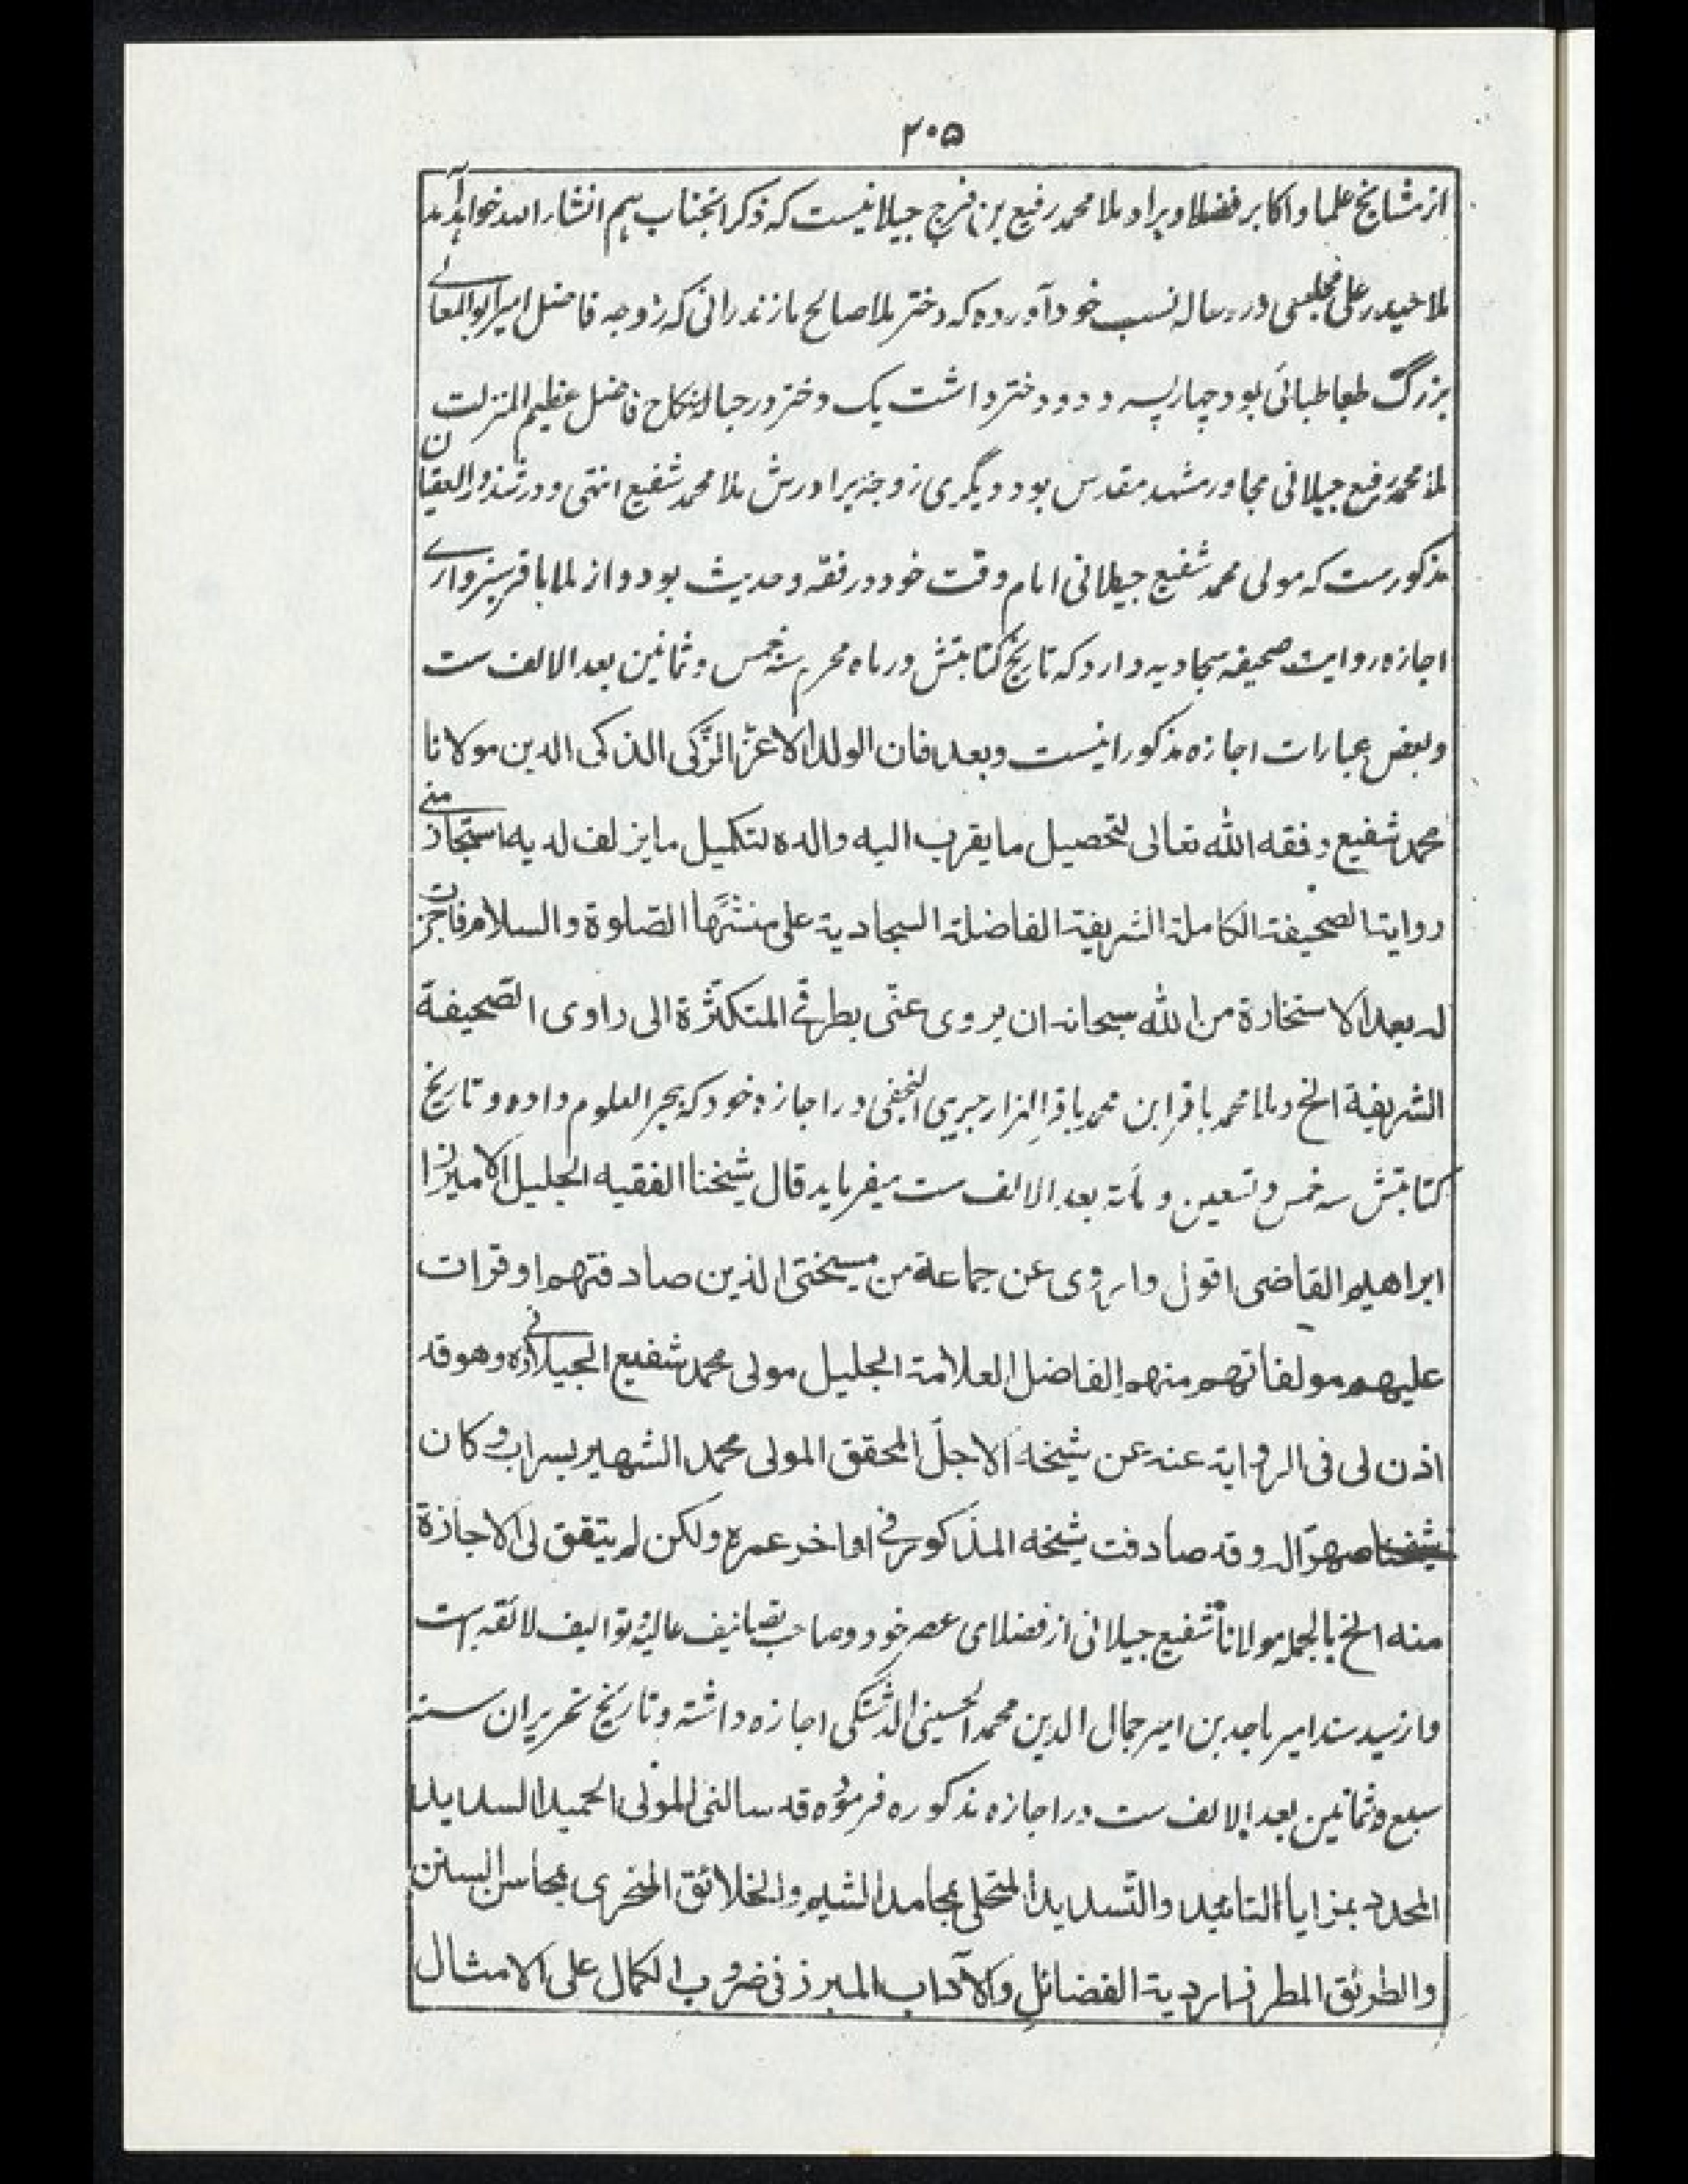 ۲۰۵
از مشایخ علما و اکابر فضلا و برادر ملا محمد رفیع بن فرج جیلانیست که ذکر انجناب هم انشاء الله خواهد آمد
ملا حیدر علی مجلسی در رساله نسب خود آورده که دختر ملا صالح مازندرانی که زوجه فاضل امیر ابو المعالی
بزرگ طباطبائی بود چهار پسر و دو دختر داشت یک دختر در حباله نکاح فاضل عظیم المنزلت
ملا محمد رفیع جیلانی مجاور مشهد مقدس بود و دیگری زوجه برادرش ملا محمد شفیع انتهی و در شذور العقیان
مذکورست که مولی محمد شفیع جیلانی امام وقت خود در فقه و حدیث بود و از ملا باقر سبزواری
اجازه روایت صحیفه سجادیه دارد که تاریخ کتابتش در ماه محرم سنه خمس و ثمانین بعد الالف ست
و بعض عبارات اجازه مذکور اینست وبعد فان الولد الاعز الزکی الذکی الدین مولانا
محمد شفیع وفقه الله تعالی لتحصیل ما یقرب الیه والده لتکمیل ما یزلف لدیه استجاز منی
روایة الصحیفة الکاملة الشریفة الفاضلة السجادیة علی منشئها الصلوة والسلام فاجزت
له بعد الاستخارة من الله سبحانه ان یروی عنی بطرقی المتکثرة الی راوی الصحیفة
الشریفة الخ و ملا محمد باقر ابن محمد باقر الهزارجریبی النجفی در اجازه خود که بحر العلوم داده و تاریخ
کتابتش سنه خمس و تسعین و مأة بعد الالف ست میفرماید قال شیخنا الفقیه الجلیل الامیرزا
ابراهیم القاضی اقول واروی عن جماعة من مشیختی الذین صادفتهم او قرات
علیهم مولفاتهم منهم الفاضل العلامة الجلیل مولی محمد شفیع الجیلانی ره وهو قد
اذن لی فی الروایة عنه عن شیخه الاجل المحقق المولی محمد الشهیر بسراب وکان
شیخنا صهرا له وقد صادفت شیخه المذکور فی اواخر عمره ولکن لم یتفق لی الاجازة
منه الخ بالجمله مولانا شفیع جیلانی از فضلای عصر خود و صاحب تصانیف عالیه و توالیف لائقه است
و از سید سند امیر ماجد بن امیر جمال الدین محمد الحسینی الدشتکی اجازه داشته و تاریخ تحریر ان سنه
سبع و ثمانین بعد الالف ست در اجازه مذکوره فرموده قد سالنی المولی الحمید السدید
المحدد بمزایا التایید والتسدید المتحلی بمحامد الشیم والخلائق المتحری بمحاسن السنن
والطرئق المطرف باردیة الفضائل والآداب المبرز فی ضروب الکمال علی الامثال